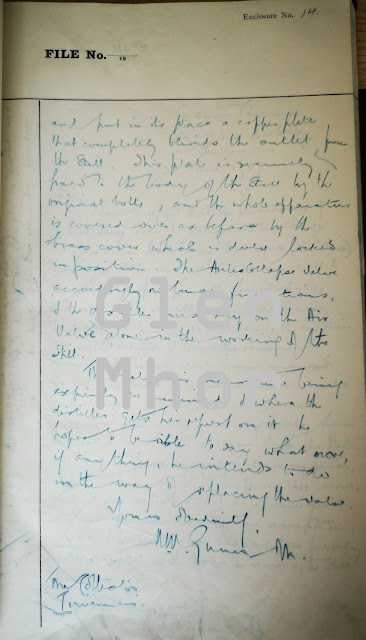 Enclosure No. 14.
FILE No.
and put in its place a copper plate
that completely blinds the outlet from
the Still. This plate is securely
fixed to the body of the Still by the
original bolts, and the whole apparatus
is covered over as before by the
brass cover which is locked
in position. The Valve
accordingly no longer functions,
& the distiller relies only on the Air
Valve alone in the working of the
Still.
The valve is now being
examined & when the
distiller gets his report on it he
hopes to be able to say what more,
if anything, he intends to do
in the way of replacing the valve.
Yours
The Collector
Inverness.
Glen
Mhor